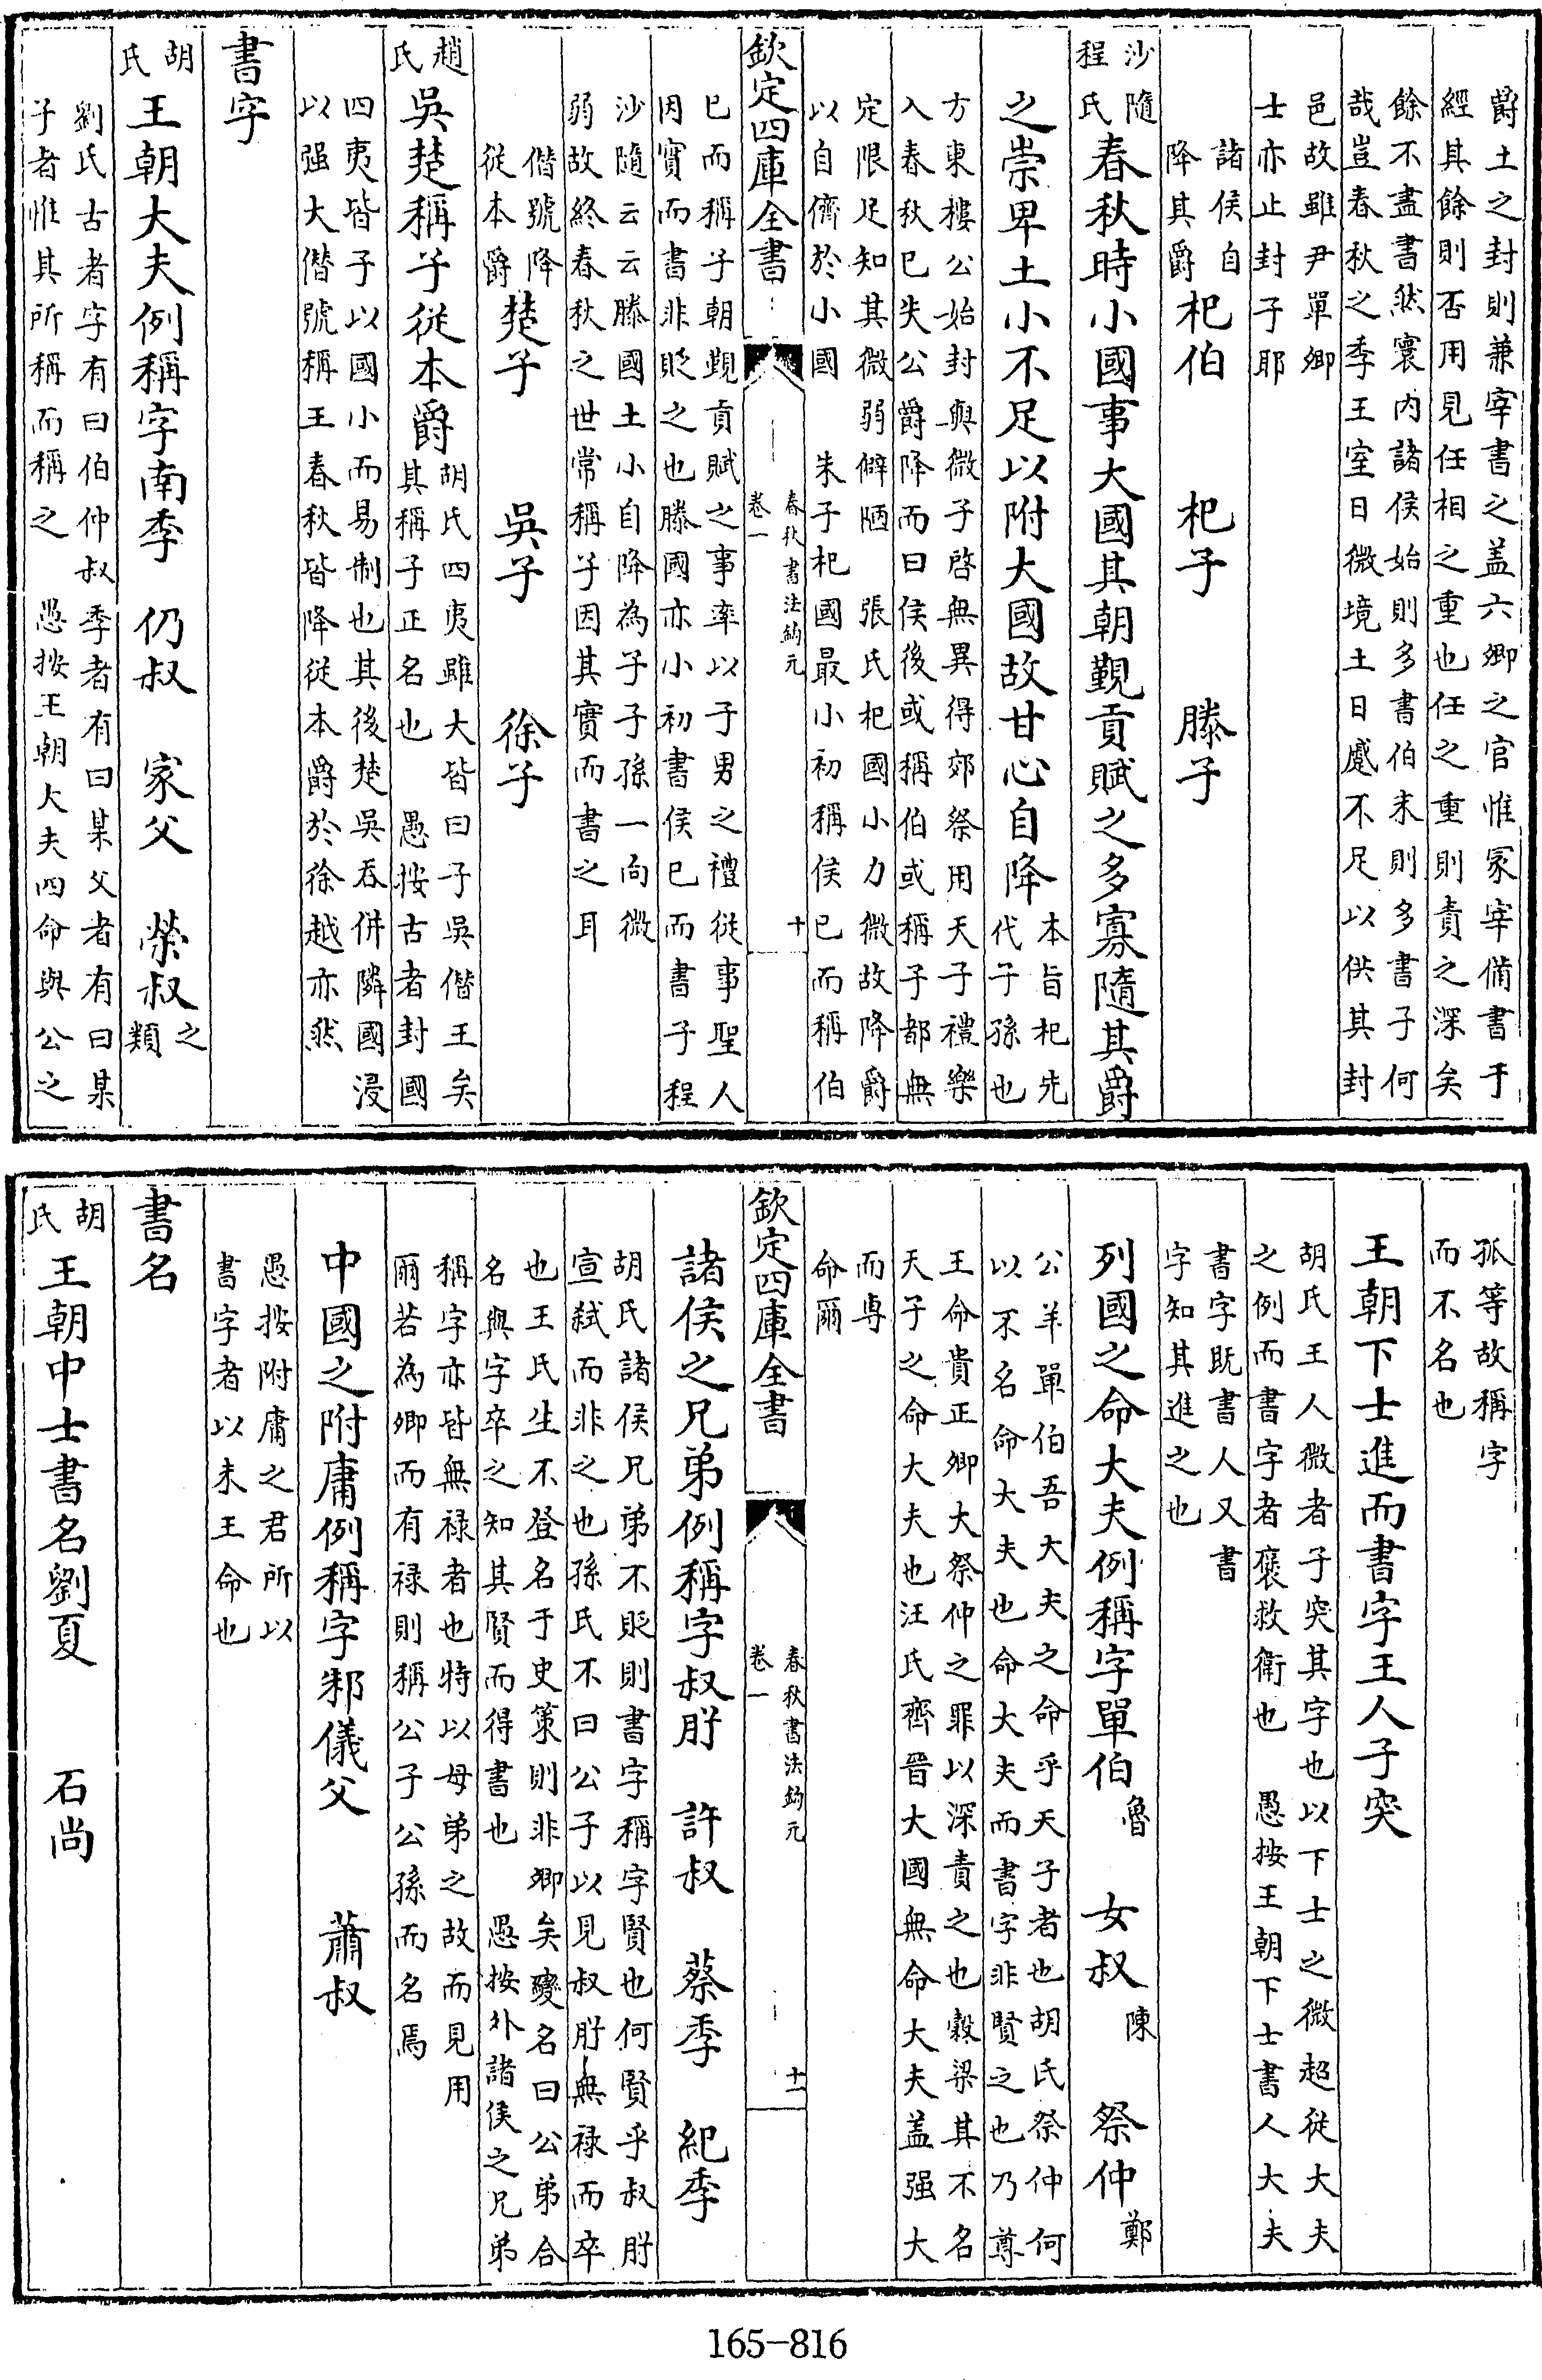 爵土之封則兼宰書之盖六卿之官惟冢宰備書于
經其餘則否用見任相之重也任之重則責之深矣
餘不盡書然寰内諸侯始則多書伯末則多書子何
哉豈春秋之季王室日微境土日蹙不足以供其封
邑故雖尹單卿
士亦止封子耶
諸侯自
降其爵
杞伯　杞子　滕子
沙隨
程氏
春秋時小國事大國其朝覲貢賦之多寡隨其爵
之崇卑土小不足以附大國故甘心自降
本旨杞先
代子孫也
方東樓公始封與微子啓無異得郊祭用天子禮樂
入春秋已失公爵降而曰侯後或稱伯或稱子都無
定限足知其微弱僻陋　張氏杞國小力微故降爵
以自儕於小國　朱子杞國最小初稱侯已而稱伯
欽定四庫全書
春秋書法鈎元
卷一
十
已而稱子朝覲貢賦之事率以子男之禮從事聖人
因實而書非貶之也滕國亦小初書侯已而書子程
沙隨云云滕國土小自降為子子孫一向微
弱故終春秋之世常稱子因其實而書之耳
僭號降
從本爵
楚子　吳子　徐子
趙氏
吳楚稱子從本爵
胡氏四夷雖大皆曰子吳僭王矣
其稱子正名也　愚按古者封國
四夷皆子以國小而易制也其後楚吳吞併隣國浸
以强大僭號稱王春秋皆降從本爵於徐越亦然
書字
胡氏
王朝大夫例稱字南季　仍叔　家父　榮叔
之類
劉氏古者字有曰伯仲叔季者有曰某父者有曰某
子者惟其所稱而稱之　愚按王朝大夫四命與公之
孤等故稱字
而不名也
王朝下士進而書字王人子突
胡氏王人微者子突其字也以下士之微超從大夫
之例而書字者褒救衛也　愚按王朝下士書人大夫
書字既書人又書
字知其進之也
列國之命大夫例稱字單伯
魯
女叔
陳
祭仲
鄭
公羊單伯吾大夫之命乎天子者也胡氏祭仲何
以不名命大夫也命大夫而書字非賢之也乃尊
王命貴正卿大祭仲之罪以深責之也穀梁其不名
天子之命大夫也汪氏齊晉大國無命大夫盖强大
而專
命爾
欽定四庫全書
春秋書法鈎元
卷一
十一
諸侯之兄弟例稱字叔肸　許叔　蔡季　紀季
胡氏諸侯兄弟不貶則書字稱字賢也何賢乎叔肸
宣弑而非之也孫氏不曰公子以見叔肸無禄而卒
也王氏生不登名于史策則非卿矣變名曰公弟合
名與字卒之知其賢而得書也　愚按外諸侯之兄弟
稱字亦皆無禄者也特以母弟之故而見用
爾若為卿而有禄則稱公子公孫而名焉
中國之附庸例稱字邾儀父　蕭叔
愚按附庸之君所以
書字者以未王命也
書名
胡氏
王朝中士書名劉夏　石尚
165-816